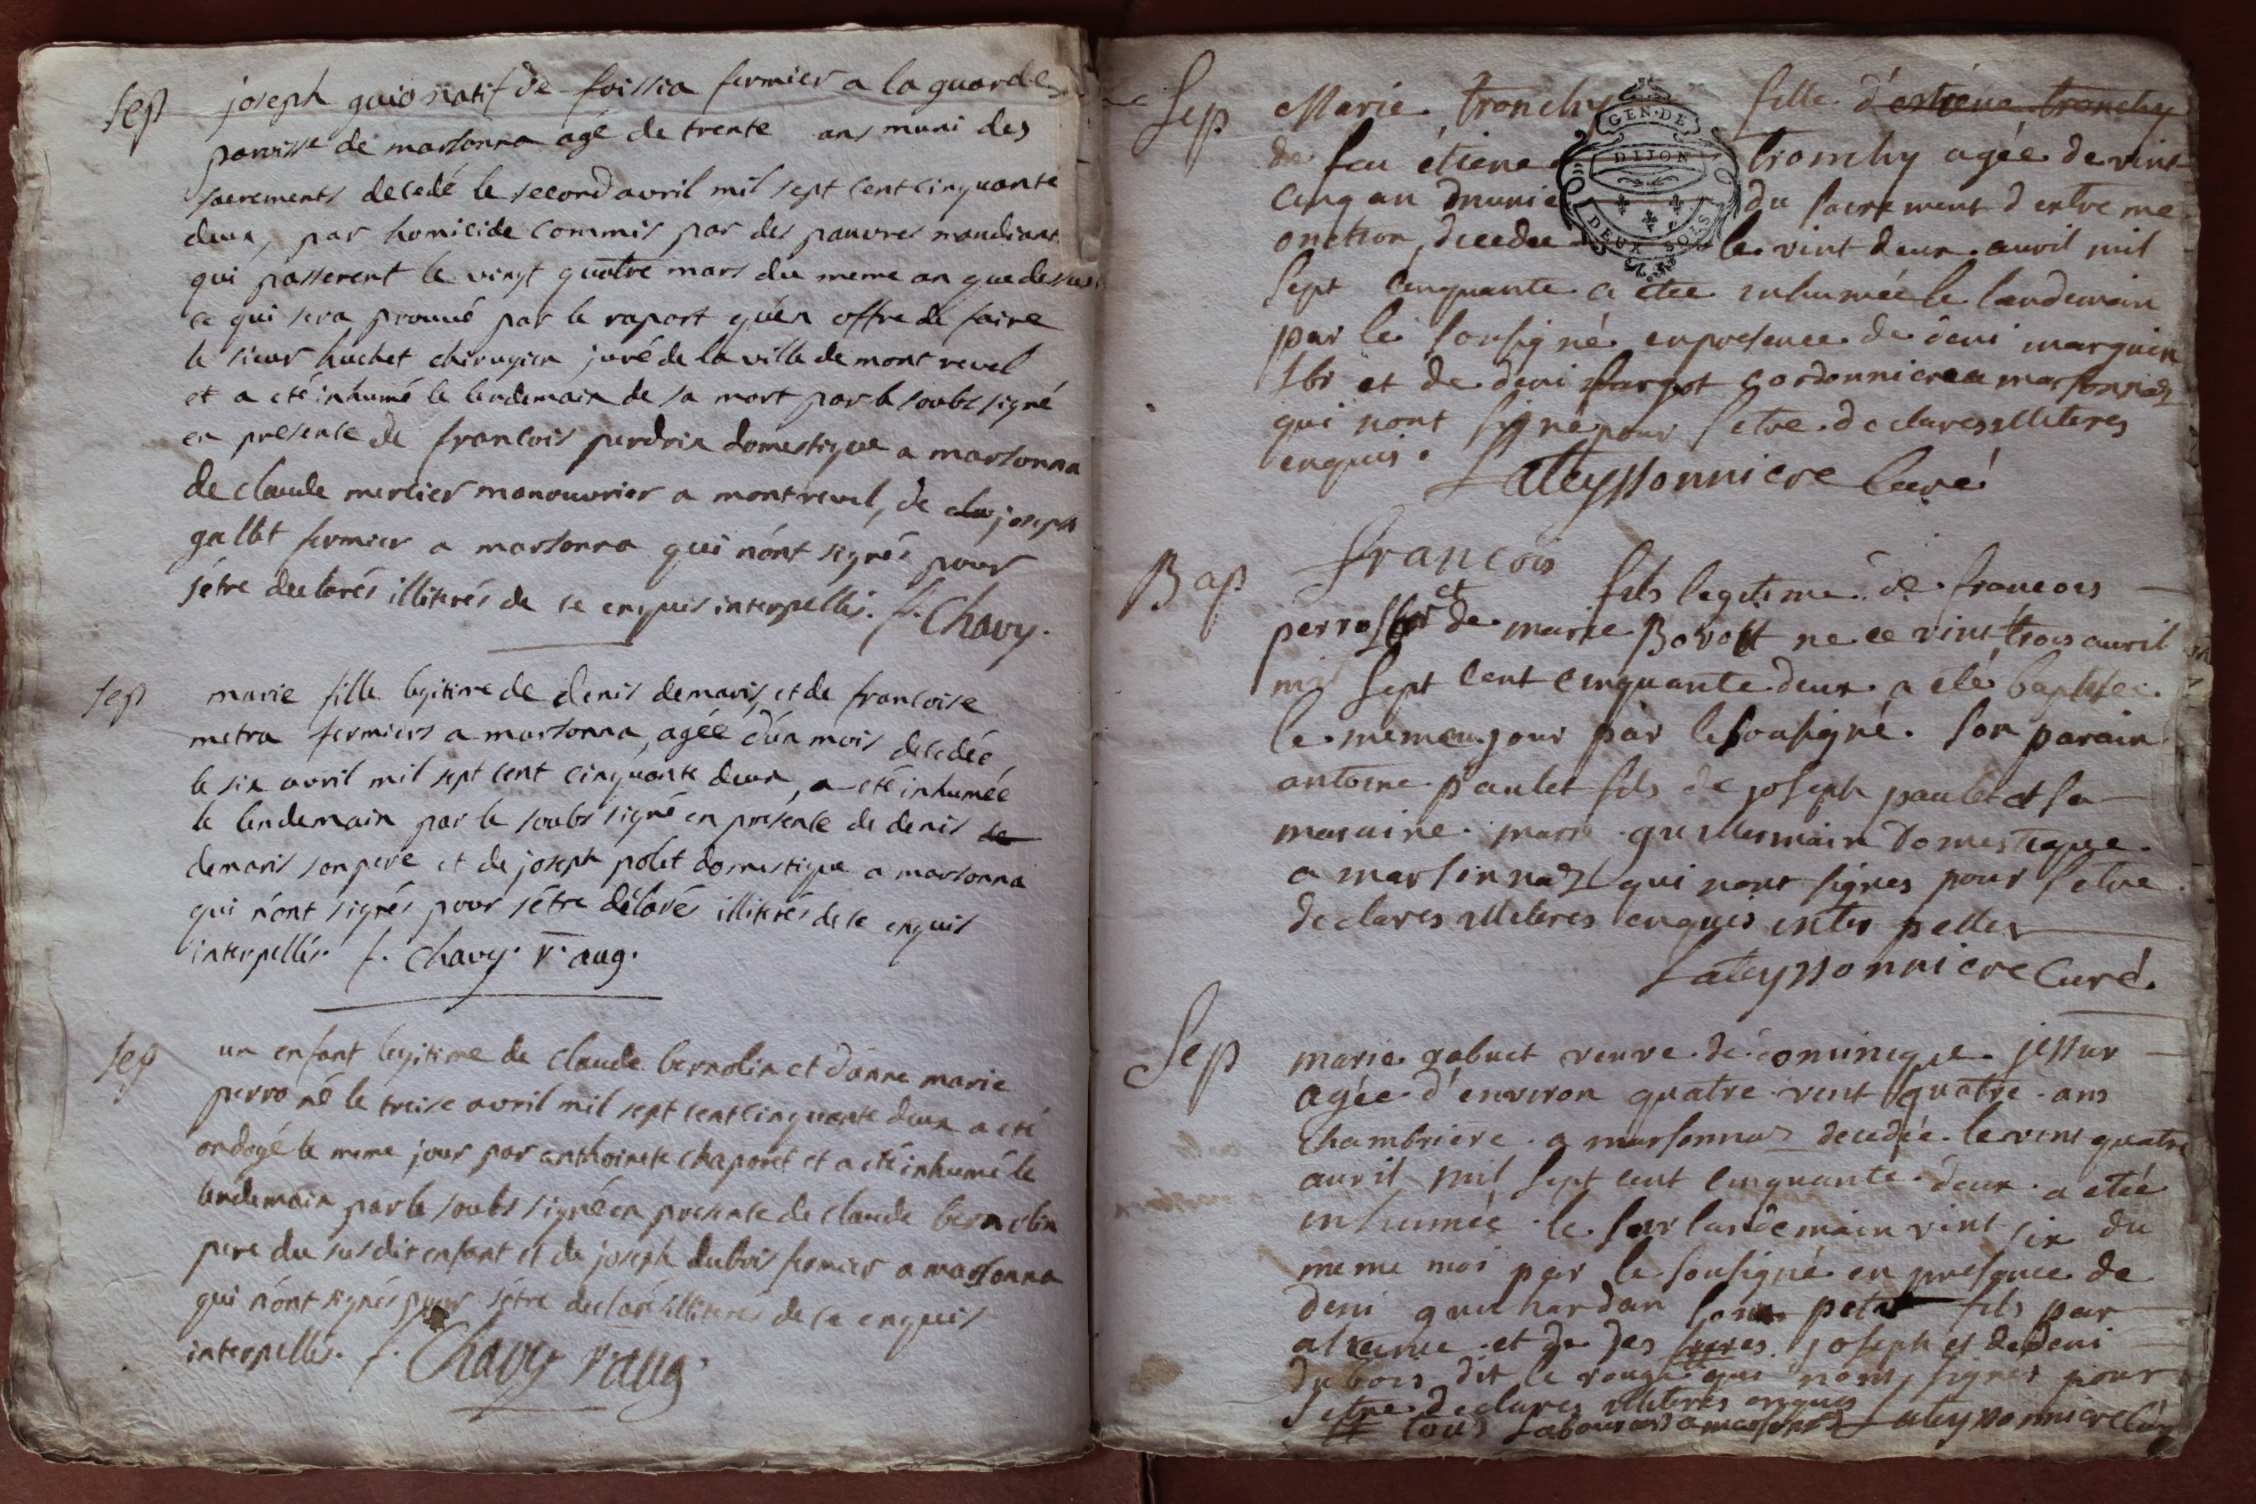 Sep joseph guionatif de foissia fermier a la guarde
paroisse de marsonna agé de trente ans muni des
sacrements decedé le second avril mil sept cent cinquante
deux, par homicide commis par des pauvres mandiants
qui passerent le vingt quatre mars du meme an que dessus
ce qui sera prouvé par le raport qu'en offre de faire
le sieur huchet chirugien juré de la ville de mont revel
et a eté inhumé le lendemain de sa mort par le soubs signé
en presence de francois perdrix domestique a marsonna
de claude mercier manouvrier a montrevel, de joseph
gallet fermier a marsonna qui n'ont signés pour
s'etre declarés illiterés de ce enquis interpellés. f. Chavy.
Sep marie fille legitime de denis demaris, et de francoise
metra fermiers a marsonna, agée d'un mois decedée
le six avril mil sept cent cinquante deux, a eté inhumée
le lendemain par le soubs signé en presence de denis de
demaris son pere et de joseph polet domestique a marsonna
qui n'ont signés pour s'etre délarés illiterés de ce enquis
interpellés. f. Chavy. v. aug.
Sep un enfant legitime de claude bernolin et d'anne marie
perro né le treise avril mil sept cent cinquante deux a eté
ondoyé le meme jour par anthoinete chaponet et a eté inhumé le
lendemain par le soubs signé en presence de claude bernolin
pere du susdit enfant et de joseph dubois fermier a marsonna
qui n'ont signés pour s'etre declaré illiterés de ce enquis
interpellés. f. Chavy v. aug.
Sep Marie tronchy fille d'estiene tronchy
de feu étiene tronchy agée de vint
cinq an munie du sacrement d'extreme
onction, decedee le vint deux auvril mil
sept cinquante a etee inhumée le landemain
par le sousigné en presence de deni marguin
lbr et de deni fargot cordonnier a marsonnaz
qui nont signé pour s'etre declares illiteres
enquis. Lateyssonniere Curé
GEN. DE DIJON
DEUX SOLS
Bap francois fils legitime de francois
perro lbr et de marie Bovost ne ce vint trois auvril
mil sept cent cinquante deux a eté baptise
le meme jour par le sousigné. son parain
antoine paulet fils de joseph paulet et sa
maraine marie guillermain domestique
a marsinnaz qui nont signes pour s'etre
declares illiteres enquis inter pelles
Lateyssonniere Curé.
Sep marie gobuet veuve de dominique jessur
agée d'environ quatre vint quatre ans
chambriere a marsonnaz decedée le vint quatre
auvril mil sept cent cinquante deux a eteé
inhumée le sur landemain vint six du
meme moi par le sousigné en presence de
deni guichardan son petit fils par
aliance et de des freres joseph et de deni
dubois dit le rouge qui nont signes pour
s'etre declares illiteres enquis
tous laboureurs a marsonnaz Lateyssonniere Curé